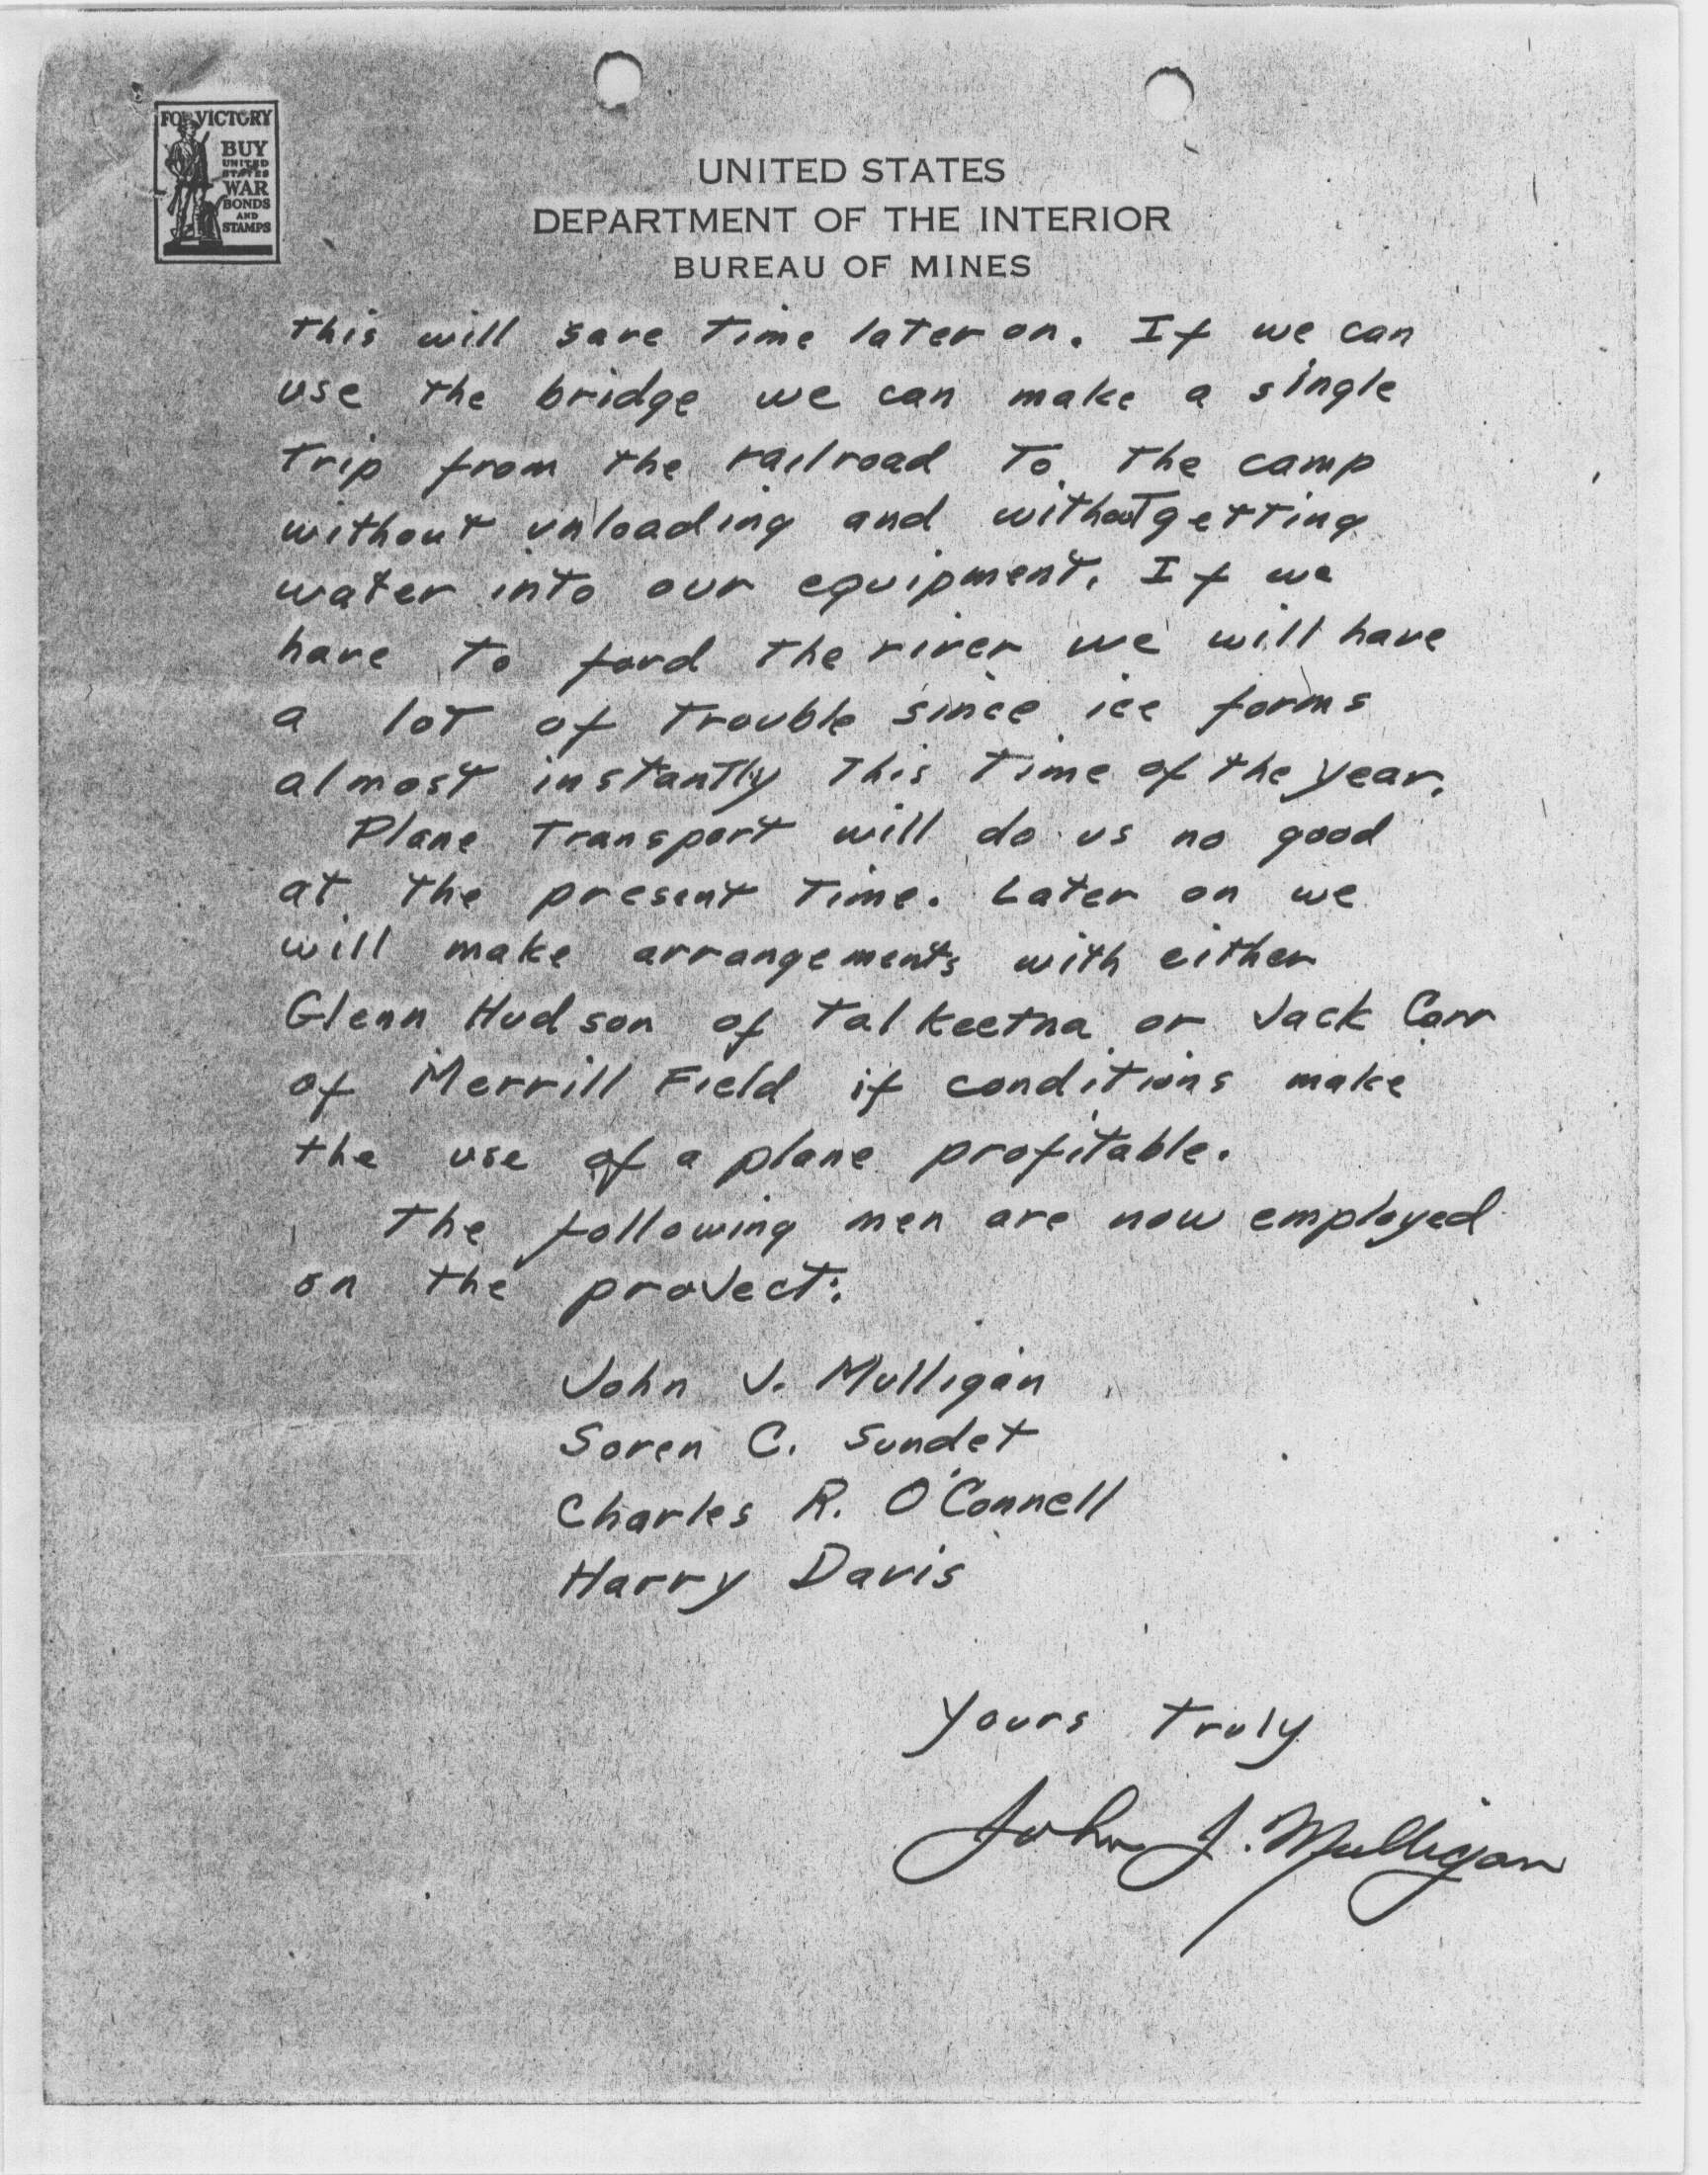 FOR VICTORY
BUY
UNITED
STATES
WAR
BONDS
AND
STAMPS
UNITED STATES
DEPARTMENT OF THE INTERIOR
BUREAU OF MINES
this will save time later on. If we can
use the bridge we can make a single
trip from the railroad to the camp
without unloading and without getting
water into our equipment. If we
have to ford the river we will have
a lot of trouble since ice forms
almost instantly this time of the year.
Plane transport will do us no good
at the present time. Later on we
will make arrangements with either
Glenn Hudson of Talkeetna or Jack Carr
of Merrill Field if conditions make
the use of a plane profitable.
The following men are now employed
on the project:
John J. Mulligan
Soren C. Sundet
Charles R. O'Connell
Harry Davis
Yours truly
John J. Mulligan